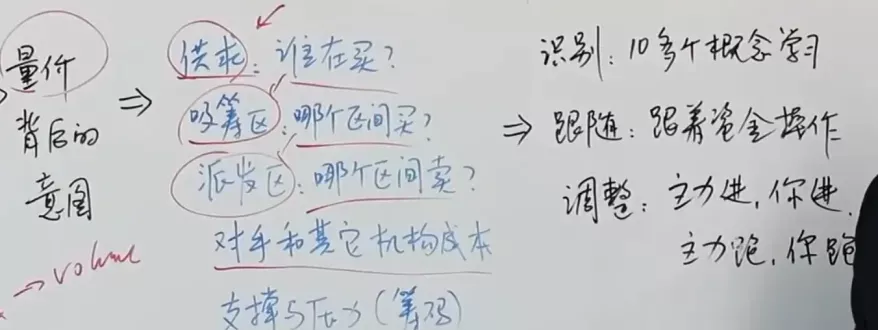 量价
背后的
意图
→volume
⇒
供求：谁在买？
吸筹区：哪个区间买？
派发区：哪个区间卖？
对手和其它机构成本
支撑与压力（筹码）
⇒
识别：10多个概念学习
跟随：跟着资金操作
调整：主力进，你进.
主力跑，你跑